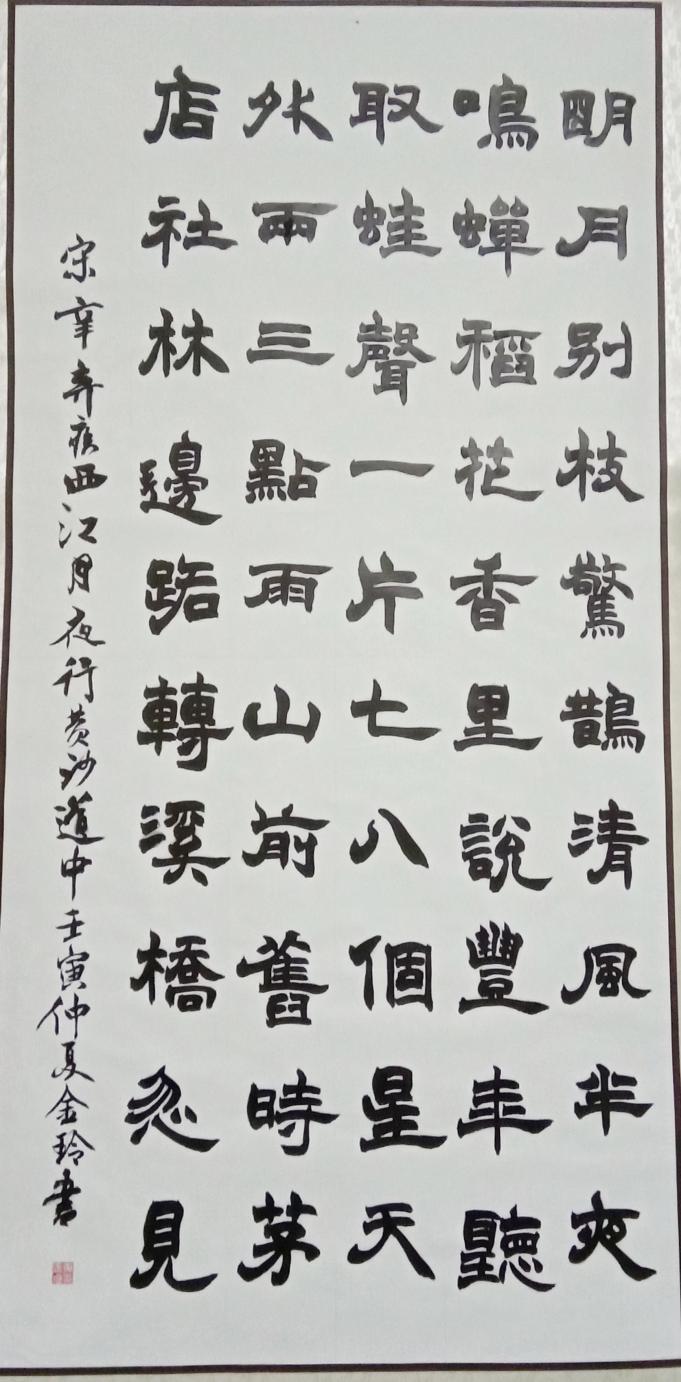 明月别枝驚鵲清風半夜
鳴蟬稻花香里說豐年聽
取蛙聲一片七八個星天
外兩三點雨山前舊時茅
店社林邊路轉溪橋忽見
宋辛弃疾西江月夜行黄沙道中壬寅仲夏金玲書